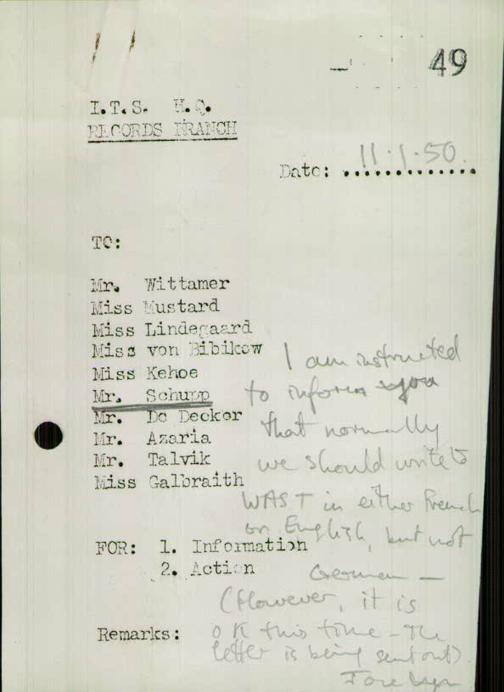 49
I.T.S. H.Q.
RECORDS BRANCH
Date: 11.1.50.
TO:
Mr. Wittamer
Miss Mustard
Miss Lindegaard
Miss von Bibikow
Miss Kehoe
Mr. Schupp
Mr. De Decker
Mr. Azaria
Mr. Talvik
Miss Galbraith
I am instructed
to inform you
that normally
we should write to
WAST in either French
or English, but not
German —
(However, it is
OK this time - The
letter is being sent out)
FOR: 1. Information
2. Action
Remarks: